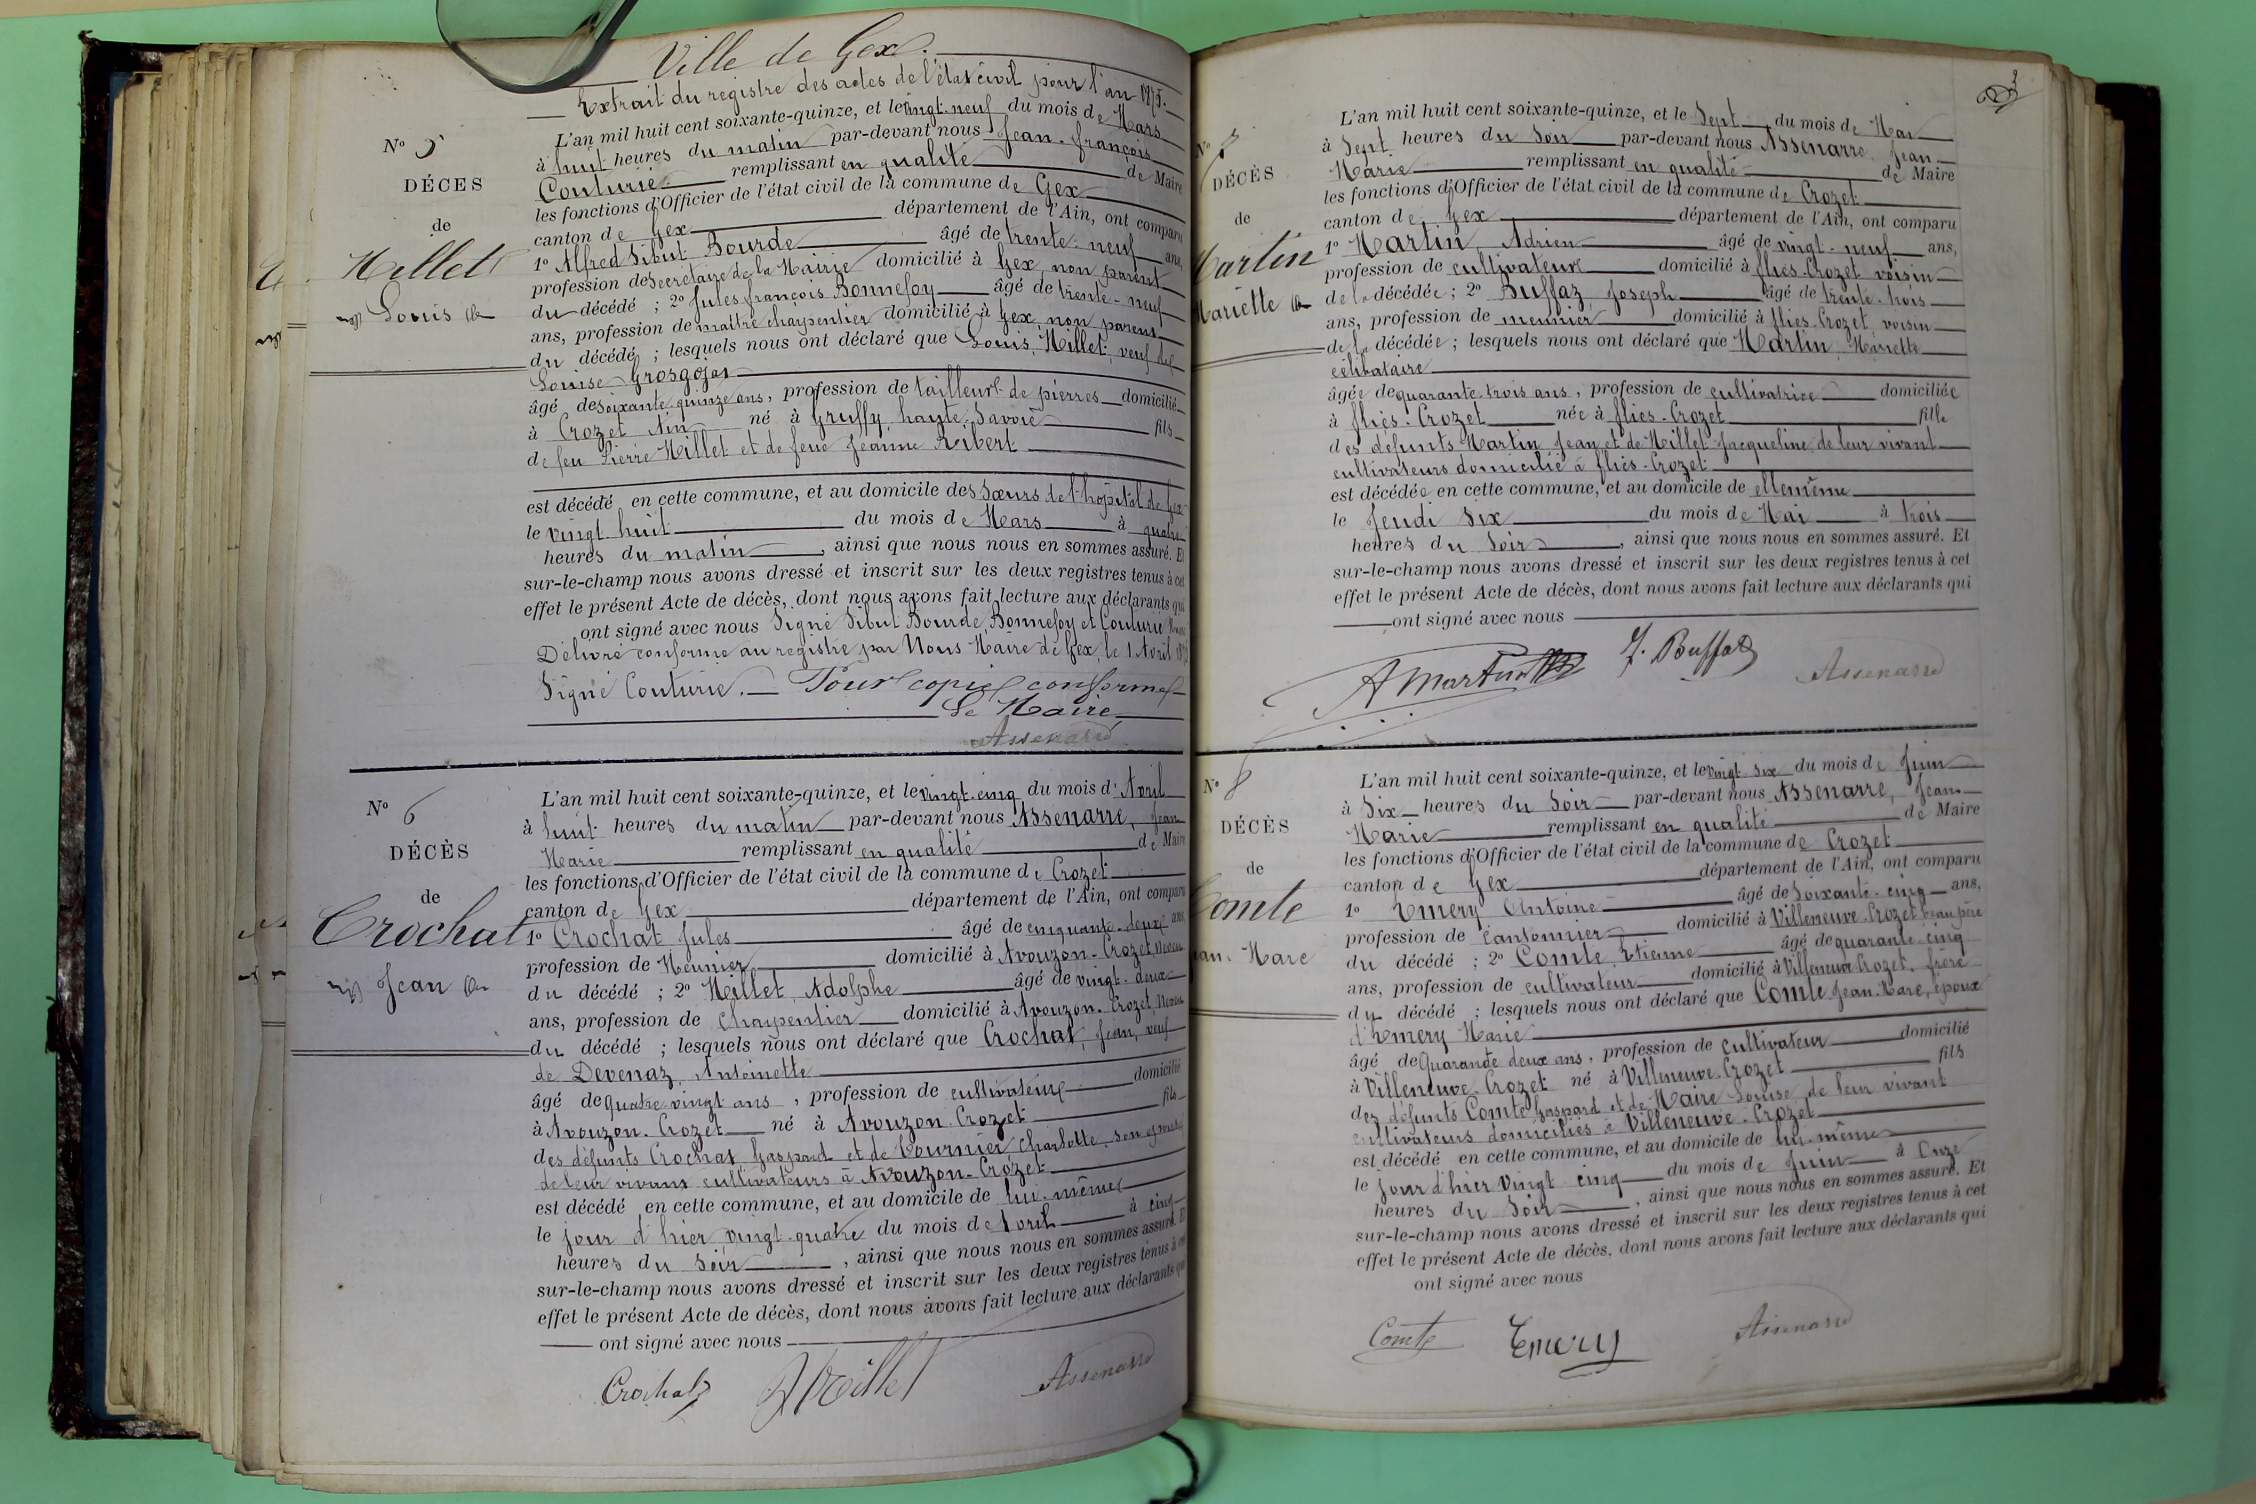 Ville de Gex.
Extrait du registre des actes de l'état civil pour l'an 1875.
N° 5
DÉCES
de
Millet
Louis
L'an mil huit cent soixante-quinze, et le vingt-neuf du mois de Mars
à huit heures du matin par-devant nous Jean-François
Couturier remplissant en qualité de Maire
les fonctions d'Officier de l'état civil de la commune de Gex
canton de Gex département de l'Ain, ont comparu
1° Alfred Sibut Bourde âgé de trente-neuf ans,
profession de Secrétaire de la Mairie domicilié à Gex, non parent
du décédé ; 2° Jules François Bonnefoy âgé de trente-neuf
ans, profession de maître charpentier domicilié à Gex, non parent
du décédé ; lesquels nous ont déclaré que Louis Millet, veuf de
Louise Grosgojat
âgé de soixante-quinze ans, profession de tailleur de pierres domicilié
à Crozet Ain né à Gruffy, haute-Savoie fils
de feu Pierre Millet et de feue Jeanne Ribert
est décédé en cette commune, et au domicile des Sœurs de l'hopital de Gex
le vingt huit du mois de Mars à quatre
heures du matin, ainsi que nous nous en sommes assuré. Et
sur-le-champ nous avons dressé et inscrit sur les deux registres tenus à cet
effet le présent Acte de décès, dont nous avons fait lecture aux déclarants qui
ont signé avec nous Signé Sibut Bourde Bonnefoy et Couturie
Délivré conforme au registre par Nous Maire de Gex, le 1 Avril
Signé Couturie. Pour copie conforme
Le Maire
Assenarre
N° 6
DÉCÈS
de
Crochat
Jean
L'an mil huit cent soixante-quinze, et le vingt-cinq du mois d'Avril
à huit heures du matin par-devant nous Assenarre, Jean
Marie remplissant en qualité de Maire
les fonctions d'Officier de l'état civil de la commune de Crozet
canton de Gex département de l'Ain, ont comparu
1° Crochat Jules âgé de cinquante-deux ans
profession de Meunier domicilié à Avouzon-Crozet, Neveu
du décédé ; 2° Millet, Adolphe âgé de vingt-deux
ans, profession de Charpentier domicilié à Avouzon-Crozet, Neveu
du décédé ; lesquels nous ont déclaré que Crochat, Jean, veuf
de Devenaz, Antoinette
âgé de quatre vingt ans, profession de cultivateur domicilié
à Avouzon-Crozet né à Avouzon Crozet fils
des défunts Crochat Gaspard et de Tournier Charlotte, son épouse
de leur vivant cultivateurs à Avouzon-Crozet
est décédé en cette commune, et au domicile de lui-même
le jour d'hier vingt-quatre du mois de Avril à cinq
heures du soir, ainsi que nous nous en sommes assuré. Et
sur-le-champ nous avons dressé et inscrit sur les deux registres tenus à cet
effet le présent Acte de décès, dont nous avons fait lecture aux déclarants qui
ont signé avec nous
Crochat Millet Assenarre
N° 7
DÉCÈS
de
Martin
Mariette
L'an mil huit cent soixante-quinze, et le Sept du mois de Mai
à Sept heures du Soir par-devant nous Assenarre Jean
Marie remplissant en qualité de Maire
les fonctions d'Officier de l'état civil de la commune de Crozet
canton de Gex département de l'Ain, ont comparu
1° Martin, Adrien âgé de vingt-neuf ans,
profession de cultivateur domicilié à fliès-Crozet voisin
de la décédée ; 2° Buffaz Joseph âgé de trente-trois
ans, profession de meunier domicilié à fliès-Crozet, voisin
de la décédée ; lesquels nous ont déclaré que Martin, Mariette
célibataire
âgée de quarante-trois ans, profession de cultivatrice domiciliée
à fliès-Crozet née à fliès-Crozet fille
des défunts Martin Jean et de Millet Jacqueline, de leur vivant
cultivateurs domicilié à fliès-Crozet
est décédée en cette commune, et au domicile de ellemême
le Jeudi Six du mois de Mai à trois
heures du Soir, ainsi que nous nous en sommes assuré. Et
sur-le-champ nous avons dressé et inscrit sur les deux registres tenus à cet
effet le présent Acte de décès, dont nous avons fait lecture aux déclarants qui
ont signé avec nous
A Martin J. Buffaz Assenarre
N° 8
DÉCÈS
de
Comte
Jean-Marc
L'an mil huit cent soixante-quinze, et le vingt six du mois de Juin
à Six heures du Soir par-devant nous Assenarre, Jean
Marie remplissant en qualité de Maire
les fonctions d'Officier de l'état civil de la commune de Crozet
canton de Gex département de l'Ain, ont comparu
1° Emery Antoine âgé de Soixante-cinq ans,
profession de Cantonnier domicilié à Villeneuve-Crozet, beau père
du décédé ; 2° Comte, Etienne âgé de quarante cinq
ans, profession de cultivateur domicilié à Villeneuve Crozet, frère
du décédé ; lesquels nous ont déclaré que Comte Jean-Marc, époux
d'Emery Marie
âgé de Quarante deux ans, profession de Cultivateur domicilié
à Villeneuve-Crozet né à Villeneuve-Crozet fils
des défunts Comte Gaspard et de Maire Louise, de leur vivant
cultivateurs domiciliés à Villeneuve-Crozet
est décédé en cette commune, et au domicile de lui-même
le jour d'hier Vingt cinq du mois de Juin à Onze
heures du Soir, ainsi que nous nous en sommes assuré. Et
sur-le-champ nous avons dressé et inscrit sur les deux registres tenus à cet
effet le présent Acte de décès, dont nous avons fait lecture aux déclarants qui
ont signé avec nous
Comte Emery Assenarre